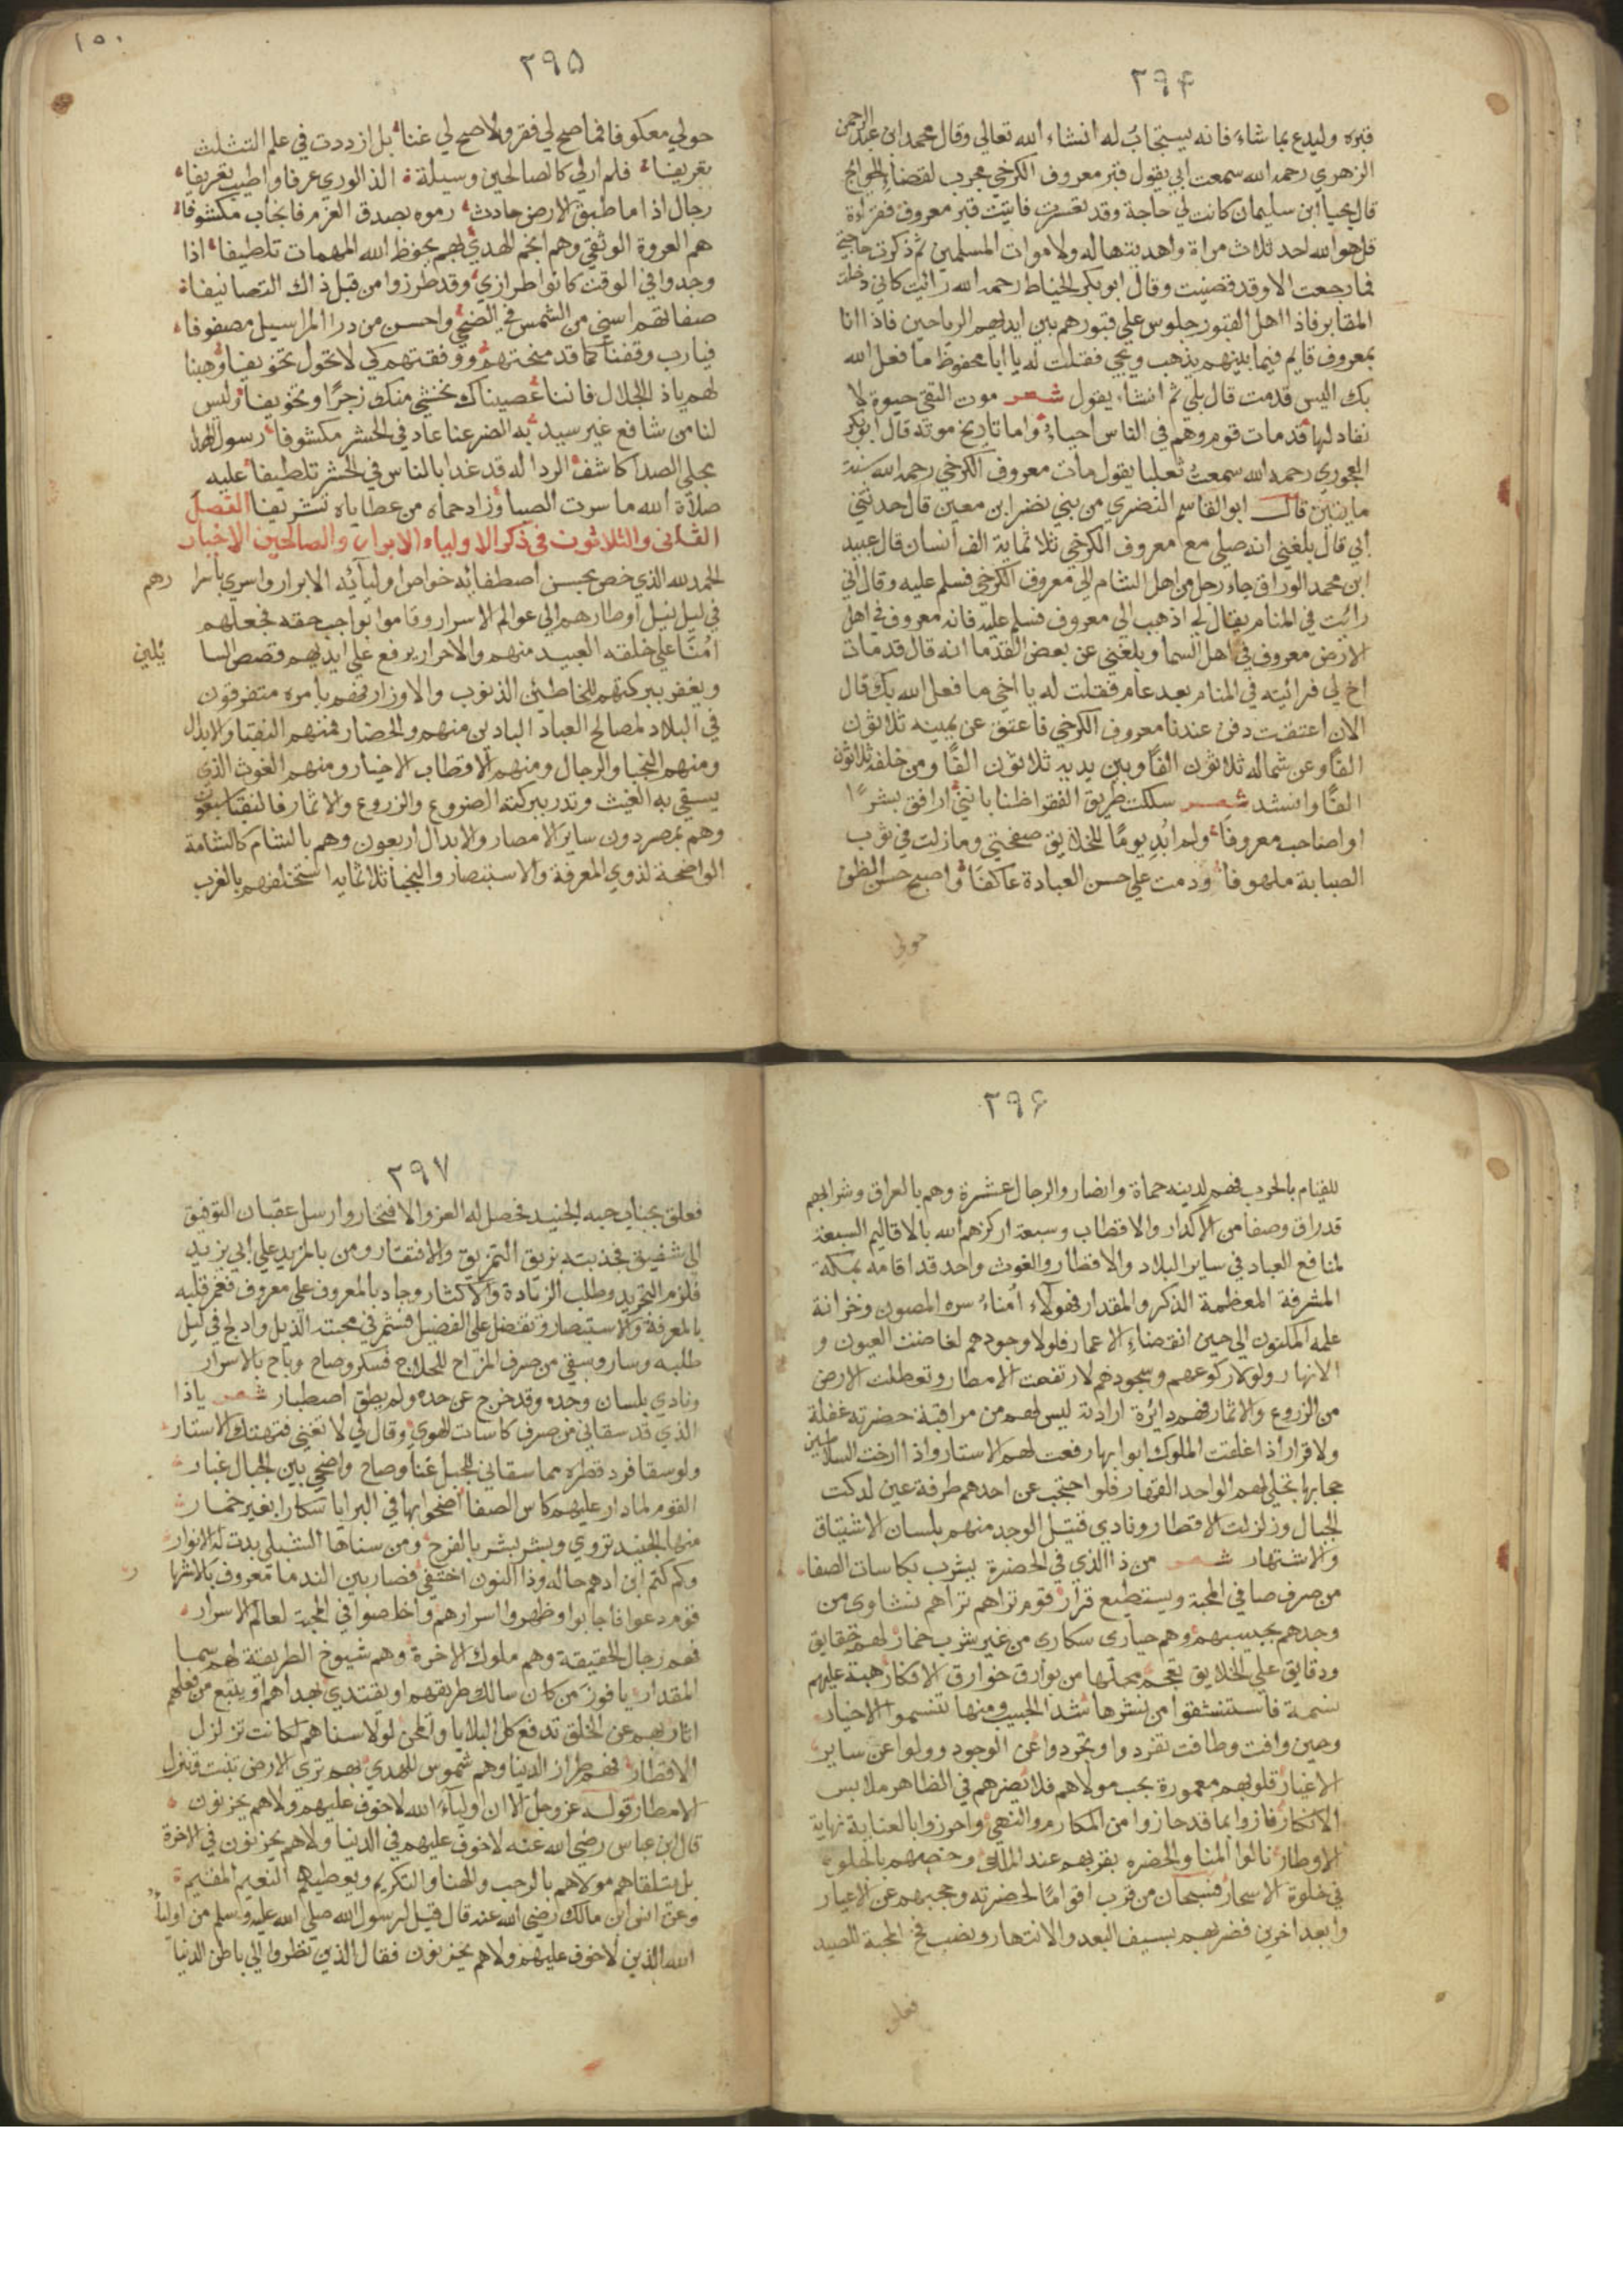 ٢٩۴
قبره وليدع بما شاء فانه يستجاب له انشاء الله تعالي وقال محمد ابن عبد الرحمن
الزهري رحمه الله سمعت ابي يقول قبر معروف الكرخي مجرب لقضاء الحوائج
قال يحيا ابن سليمان كانت لي حاجة وقد تعسرت فاتيت قبر معروف فقراءة
قل هو الله احد ثلاث مراة واهديتها له ولاموات المسلمين ثم ذكرت حاجتي
فما رجعت الا وقد قضيت وقال ابو بكر الخياط رحمه الله رائيت كاني دخلت
المقابر فاذا اهل القبور جلوس علي قبورهم بين ايديهم الرياحين فاذا انا
بمعروف قايم فيما بينهم يذهب ويجي فقلت له يا ابا محفوظ ما فعل الله
بك اليس قدمت قال بلي ثم انشاء يقول شعر موت التقي حيوة لا
نفاد لها قد مات قوم وهم في الناس احياء واما تاريخ موته قال ابو بكر
رحمه الله سمعت ثعلبا يقول مات معروف الكرخي رحمه الله سنة
مايتين قال ابو القاسم النضري من بني نضر ابن معين قال حدثني
ابي قال بلغني انه صلي مع معروف الكرخي ثلاثماية الف انسان قال عبيد
ابن محمد الوراق جاء رجل من اهل الشام الي معروف الكرخي فسلم عليه وقال اني
رائت في المنام يقال لي اذهب الي معروف فسلم عليه فانه معروف في اهل
الارض معروف في اهل السما وبلغني عن بعض القدما انه قال قد مات
اخ لي فرائيته في المنام بعد عام فقلت له يا اخي ما فعل الله بك قال
الان اعتقت دفن عندنا معروف الكرخي فاعتق عن يمينه ثلاثون
الفًا وعن شماله ثلاثون الفًا وبين يديه ثلاثون الفًا ومن خلفه ثلاثون
الفًا وانشد شعر سلكت طريق الفقر اظنا بانني ارافق بشرًا
او اصاحب معروفا ولم ابد يومًا للخلايق صفحتي ومازلت في ثوب
الصبابة ملهوفا ودمت علي حسن العبادة عاكفًا واصبح حسن الظن
حولي
١٥٠
٢٩۵
حولي معكوفا فما صح لي فقر ولا صح لي غنا بل ازددت في علم التثلث
تعريفا فلم ار لي كالصالحين وسيلة الذ الوري عرفا واطيب تعريفا
رجال اذا ما طبق الارض حادث رموه بصدق العزم فانجاب مكشوفا
هم العروة الوثقي وهم انجم الهدي بهم يحفظ الله المهمات تلطيفا اذا
وجدوا في الوقت كانوا طرازي وقد طرزوا من قبل ذاك التصانيفا
صفاتهم اسني من الشمس في الضحي واحسن من در المراسيل مصفوفا
فيارب وقفنا كما قد منحتهم ووفقتهم كي لا تحول تخويفا وهبنا
لهم ياذ الجلال فاننا عصيناك نخشي منك زجرًا وتخويفا وليس
لنا من شافع غير سيد به الضر عنا عاد في الحشر مكشوفا رسول الهدا
مجلي الصدا كاشف الردا له قد غدا بالناس في الحشر تلطيفا عليه
صلاة الله ما سرت الصبا وزاد حماه من عطاياه تشريفا الفصل
الثاني والثلاثون في ذكر الاولياء الابرار والصالحين الاخيار
الحمد لله الذي خص بحسن اصطفائه خواص اوليائه الابرار واسري باسرارهم
في ليل نيل اوطارهم الي عوالم الاسرار وقاموا بواجب حقه فجعلهم
امنا علي خلقه العبيد منهم والاحرار يرفع علي ايديهم قصص السائلين
ويغفر ببركتهم للخاطئن الذنوب والاوزار فهم بامره متفرقون
في البلاد لمصالح العباد البادين منهم والحضار فمنهم النقبا والابدال
ومنهم النجبا والرجال ومنهم الاقطاب الاخيار ومنهم الغوث الذي
يسقي به الغيث وتدر ببركته الضروع والزروع والاثمار فالنقبا سبعون
وهم بمصر دون ساير الامصار والابدال اربعون وهم بالشام كالشامة
الواضحة لذوي المعرفة والاستبصار والنجبا ثلاثمايه استخلفهم بالغرب
٢٩۶
للقيام بالحرب فهم لدينه حماة وانصار والرجال عشرة وهم بالعراق وشرابهم
قد راق وصفا من الاكدار والاقطاب وسبعة اركزهم الله بالاقاليم السبعة
لمنافع العباد في ساير البلاد والاقطار والغوث واحد قد اقامه بمكة
المشرفة المعظمة الذكر والمقدار فهولاء امناء سره المصون وخزانة
علمه المكنون الي حين انقضاء الاعمار فلولا وجودهم لغاضت العيون و
الانهار ولولا ركوعهم وسجودهم لارتفعت الامطار وتعطلت الارض
من الزروع والاثمار فهم دائرة ارادته ليس لهم من مراقبة حضرته غفلة
ولا قرار اذا غلقت الملوك ابوابها رفعت لهم الاستار واذا ارخت السلاطين
حجابها تجلي لهم الواحد القهار فلو احتجب عن احدهم طرفة عين لدكت
الجبال وزلزلت الاقطار ونادي قتيل الوجد منهم بلسان الاشتياق
والاشتهار شعر من ذا الذي في الحضرة يشرب بكاسات الصفا
من صرف صافي المحبة ويستطيع قرار قوم تراهم تراهم نشاوي من
وجدهم بحبيبهم وهم حياري سكاري من غير شرب خمار لهم حقايق
ودقايق علي الخلايق تحملها من بوارق خوارق الافكار هبة عليهم
نسمة فاستنشقوا من نشرها شذا الحبيب ومنها تنسموا الاخيار
وحين وافت وطافت تفردوا وتجردوا عن الوجود وولوا عن ساير
الاغيار قلوبهم معمورة بحب مولاهم فلا يضرهم في الظاهر ملابس
الانكار فازوا بما قد حازوا من المكارم والنهي واحرزوا بالعناية نهاية
الاوطار نالوا المنا والحضره بقربهم عند الملك وخصهم بالخلوه
في خلوة الاسحار فسبحان من قرب اقوامًا لحضرته وحجبهم عن الاغيار
وابعد اخرين فضربهم بسيف البعد والانتهار ونصب فخ المحبة للصيد
فعلق
٢٩٧
فعلق بجناب حبه الجنيد فحصل له العز والافتخار وارسل عقبان التوفيق
الي شقيق فجذبته بزيق التمزيق والافتقار ومن بالمزيد علي ابي يزيد
فلزم التجريد وطلب الزيادة والاكثار وجاد بالمعروف علي معروف فغمر قلبه
بالمعرفة والاستبصار وتفضل علي الفضيل فشمر في محبته الذيل وادلج في ليل
طلبه وسار وسقي من صرف المزاح للحلاج فسكر وصاح وباح بالاسرار
ونادي بلسان وجده وقد خرج عن حده ولم يطق اصطبار شعر ياذا
الذي قد سقاني من صرف كاسات الهوي وقال لي لا تغني فتهتك الاستار
ولو سقا فرد قطره مما سقاني للجبل غنا وصاح واضحي بين الجبال غبار
القوم لما دار عليهم كاس الصفا اضحوا بها في البرايا سكارا بغير خمار
منها الجنيد تروي وبشر بشر بالفرح ومن سناها الشبلي بدت له الانوار
وكم كتم ابن ادهم حاله وذا النون اختفي فصار بين الندما معروف بالاشهار
قوم دعوا فاجابوا وظهروا اسرارهم واخلصوا في المحبة لعالم الاسرار
فهم رجال الحقيقة وهم ملوك الاخرة وهم شيوخ الطريقة لهم سما
المقدار يا فوز من كان سالك طريقهم او يقتدي بهداهم او يتبع من فعلهم
اثار بهم عن الخلق تدفع كل البلايا والمحن لولا سناهم لكانت تزلزل
الاقطار فهم طراز الدنيا وهم شموس للهدي بهم تري الارض تنبت وتنزل
الامطار قوله عز وجل الا ان اولياء الله لا خوف عليهم ولا هم يحزنون
قال ابن عباس رضي الله عنه لا خوف عليهم في الدنيا ولا هم يحزنون في الاخرة
بل يتلقاهم مولاهم بالرحب والهنا والتكريم ويعطيهم النعيم المقيم
وعن انس ابن مالك رضي الله عنه قال قيل لرسول الله صلي الله عليه وسلم من اولياء
الله الذين لا خوف عليهم ولا هم يحزنون فقال الذين نظروا الي باطن الدنيا